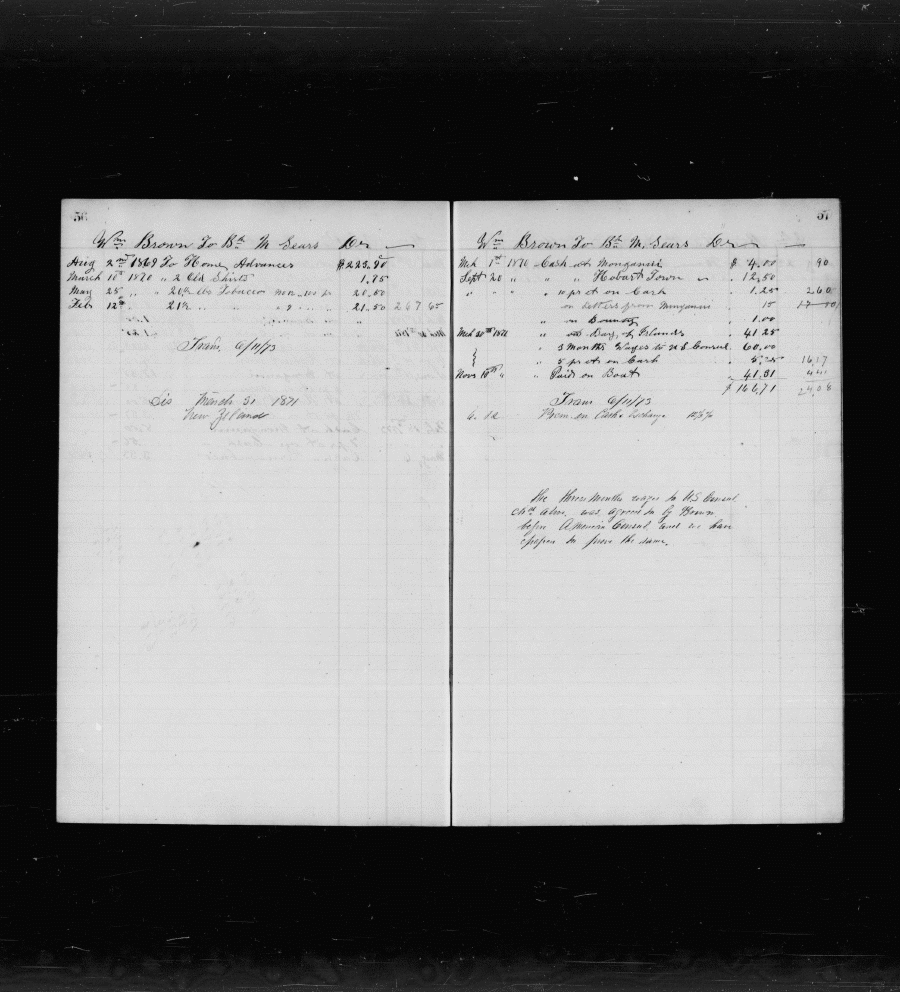 56
Wm Brown To Bk M Sears Dr
Aug 2nd 1869 To Home Advances $ 223.90
March 10th 1870 " 2 Old Shirts 1.75
May 25 " " 20 lbs Tobacco 20.50
Feb 12th 21 " " " 21.50 267 65
Trans 6/11/73
Dis March 31 1871
New Zeland
57
Wm Brown To Bk M. Sears Dr
Mch 1st 1870 Cash at Monganui $ 4.00 90
Sept 20 " " " Hobart Town " 12.50
" " " " pr ct on Cash " 1.25 260
" on letters from Monganui " 15
" on Bounty " 1.00
Mch 30th 1871 " at Bay of Islands " 41 25
" 3 months Wages to U S Consul " 60.00
" 5 pr ct on Cash 1617
Novr 10th " " Paid on Boat " 41.31 441
$ 166,71 2408
Trans 6/11/73
Prem on Cash & Exchange
The three months wages to U S Consul
chd above, was agreed to by Brown
before American Consul, and we have
papers to prove the same.